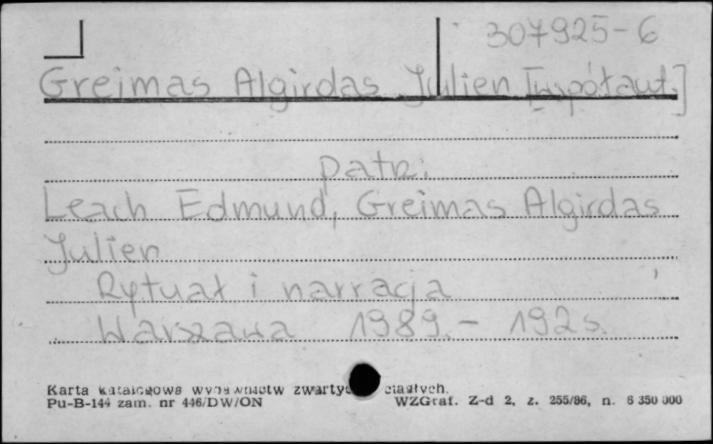 307925-6
Greimas Algirdas Julien [współaut.]
patrz:
Leach Edmund, Greimas Algirdas
Julien
Rytuał i narracja
Warszawa 1989. - 192 s.
Karta katalogowa wydawnictw zwartych ciągłych.
Pu-B-144 zam. nr 446/DW/ON WZGraf. Z-d 2, z. 255/86, n. 6 350 000